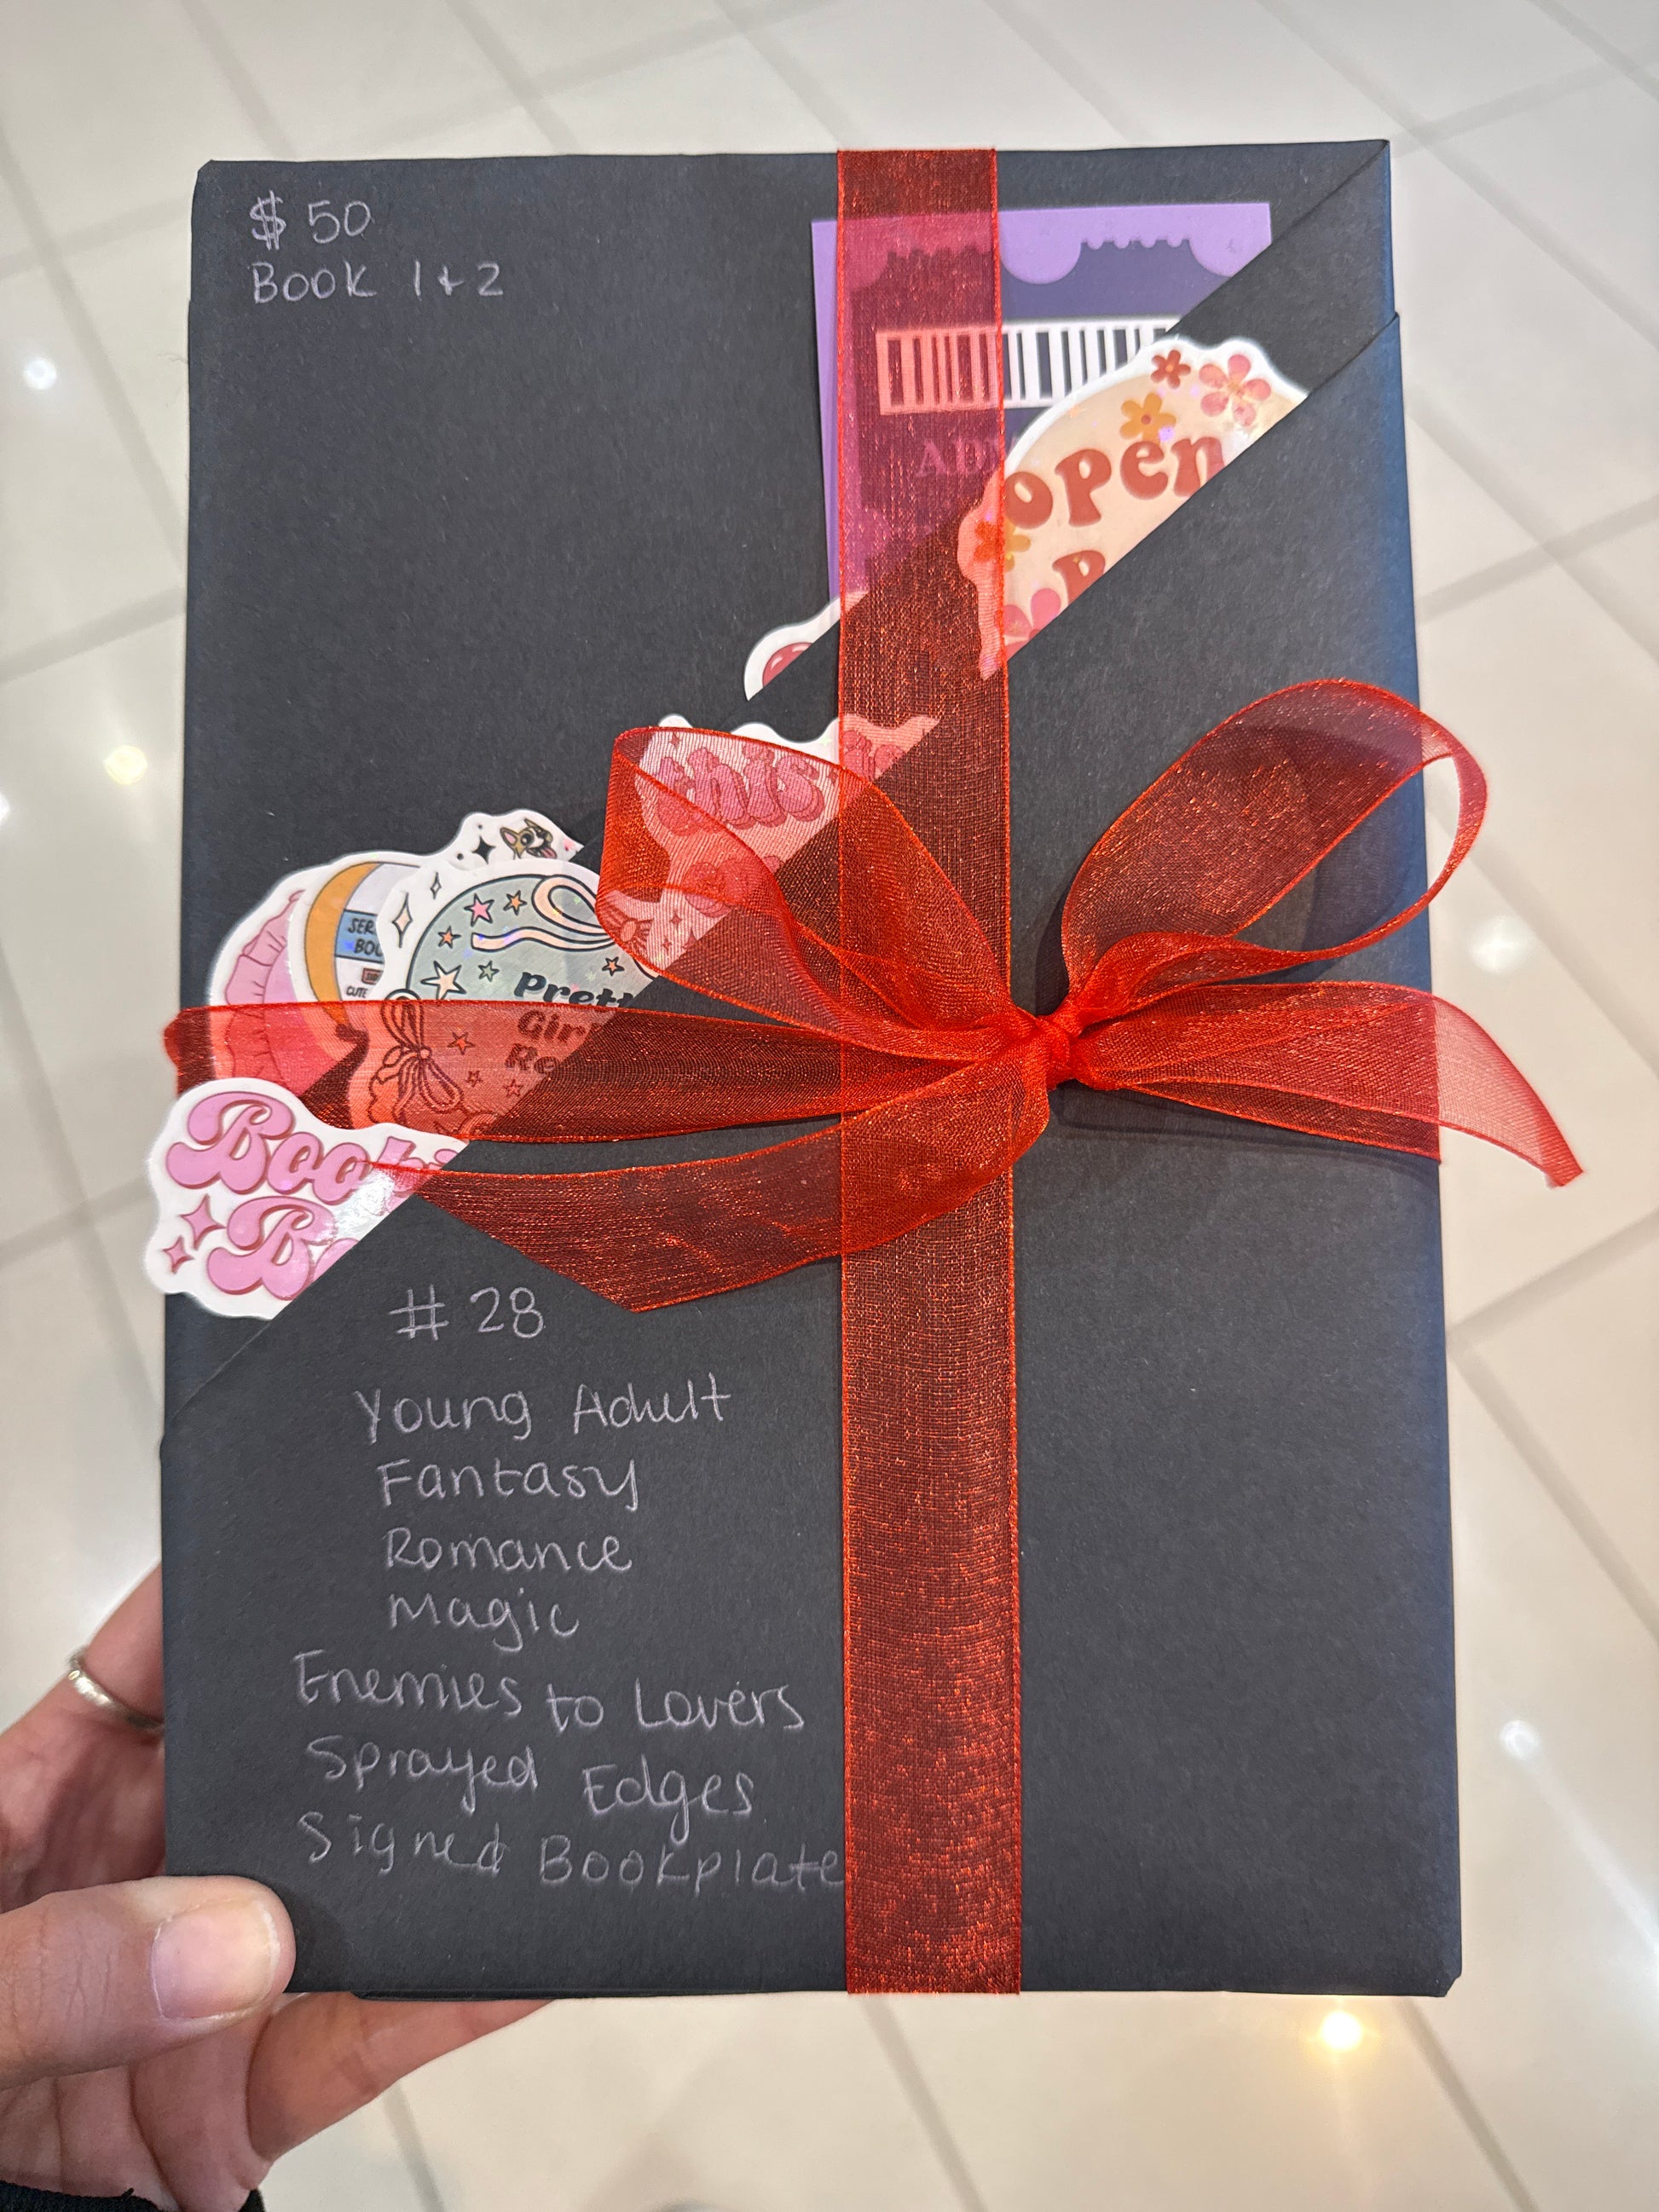 $50
Book 1+2
AD
open
this
SER
BOO
CUTE
Prett
Girl
Re
Booki
Bo
#28
Young Adult
Fantasy
Romance
Magic
Enemies to Lovers
Sprayed Edges
Signed Bookplate